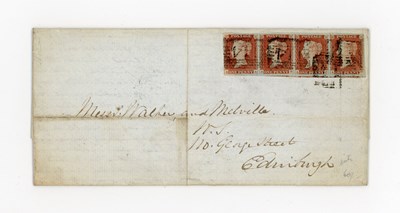 Messrs Walker and Melville
W.S.
110. George Street
Edinburgh